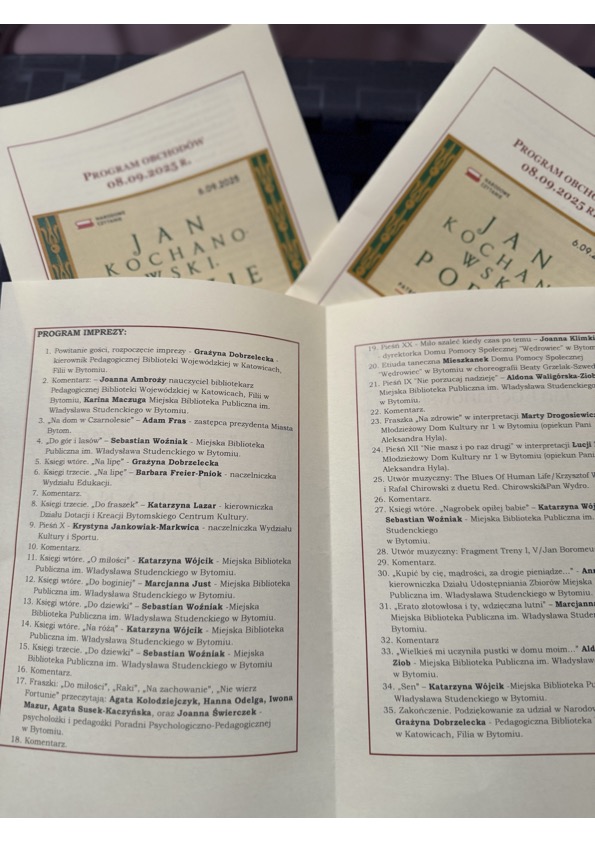 PROGRAM OBCHODÓW
08.09.2025 R.
6.09.2025
NARODOWE
CZYTANIE
JAN
KOCHANO
WSKI.
PROGRAM OBCHO
08.09.2025 R.
6.09.2
NARODOWE
CZYTANIE
JAN
KOCHANO
WSKI
PO
PROGRAM IMPREZY:
1. Powitanie gości, rozpoczęcie imprezy - Grażyna Dobrzelecka -
kierownik Pedagogicznej Biblioteki Wojewódzkiej w Katowicach,
Filii w Bytomiu.
2. Komentarz: – Joanna Ambroży nauczyciel bibliotekarz
Pedagogicznej Biblioteki Wojewódzkiej w Katowicach, Filii w
Bytomiu, Karina Maczuga Miejska Biblioteka Publiczna im.
Władysława Studenckiego w Bytomiu.
3. „Na dom w Czarnolesie” – Adam Fras - zastępca prezydenta Miasta
Bytom.
4. „Do gór i lasów” – Sebastian Woźniak - Miejska Biblioteka
Publiczna im. Władysława Studenckiego w Bytomiu.
5. Księgi wtóre. „Na lipę” - Grażyna Dobrzelecka
6. Księgi trzecie. „Na lipę” – Barbara Freier-Pniok - naczelniczka
Wydziału Edukacji.
7. Komentarz.
8. Księgi trzecie. „Do fraszek” – Katarzyna Lazar - kierowniczka
Działu Dotacji i Kreacji Bytomskiego Centrum Kultury.
9. Pieśń X - Krystyna Jankowiak-Markwica - naczelniczka Wydziału
Kultury i Sportu.
10. Komentarz.
11. Księgi wtóre. „O miłości” - Katarzyna Wójcik - Miejska Biblioteka
Publiczna im. Władysława Studenckiego w Bytomiu.
12. Księgi wtóre. „Do boginiej” – Marcjanna Just - Miejska Biblioteka
Publiczna im. Władysława Studenckiego w Bytomiu.
13. Księgi wtóre. „Do dziewki” – Sebastian Woźniak -Miejska
Biblioteka Publiczna im. Władysława Studenckiego w Bytomiu.
14. Księgi wtóre. „Na różą” - Katarzyna Wójcik - Miejska Biblioteka
Publiczna im. Władysława Studenckiego w Bytomiu.
15. Księgi trzecie. „Do dziewki” – Sebastian Woźniak - Miejska
Biblioteka Publiczna im. Władysława Studenckiego w Bytomiu
16. Komentarz.
17. Fraszki: „Do miłości”, „Raki”, „Na zachowanie”, „Nie wierz
Fortunie” przeczytają: Agata Kołodziejczyk, Hanna Odelga, Iwona
Mazur, Agata Susek-Kaczyńska, oraz Joanna Świerczek -
psycholożki i pedagożki Poradni Psychologiczno-Pedagogicznej
w Bytomiu.
18. Komentarz.
19. Pieśń XX - Miło szaleć kiedy czas po temu – Joanna Klimki
- dyrektorka Domu Pomocy Społecznej "Wędrowiec" w Bytom
20. Etiuda taneczna Mieszkanek Domu Pomocy Społecznej
"Wędrowiec" w Bytomiu w choreografii Beaty Grzelak-Szwed
21. Pieśń IX "Nie porzucaj nadzieje" – Aldona Waligórska-Ziob
Miejska Biblioteka Publiczna im. Władysława Studenckiego
w Bytomiu.
22. Komentarz.
23. Fraszka „Na zdrowie” w interpretacji Marty Drogosiewicz
Młodzieżowy Dom Kultury nr 1 w Bytomiu (opiekun Pani
Aleksandra Hyla).
24. Pieśń XII "Nie masz i po raz drugi” w interpretacji Lucji
Młodzieżowy Dom Kultury nr 1 w Bytomiu (opiekun Pani
Aleksandra Hyla).
25. Utwór muzyczny: The Blues Of Human Life/Krzysztof W
i Rafał Chirowski z duetu Red. Chirowski&Pan Wydro.
26. Komentarz.
27. Księgi wtóre. „Nagrobek opiłej babie” – Katarzyna Wój
Sebastian Woźniak - Miejska Biblioteka Publiczna im.
Studenckiego
w Bytomiu.
28. Utwór muzyczny: Fragment Treny I, V/Jan Boromeu
29. Komentarz.
30. „Kupić by cię, mądrości, za drogie pieniądze...” - Ann
kierowniczka Działu Udostępniania Zbiorów Miejska
Biblioteka Publiczna im. Władysława Studenckiego w
31. „Erato złotowłosa i ty, wdzięczna lutni” – Marcjanna
Miejska Biblioteka Publiczna im. Władysława Studen
Bytomiu.
32. Komentarz
33. „Wielkieś mi uczyniła pustki w domu moim...” Ald
Ziob - Miejska Biblioteka Publiczna im. Władysława
w Bytomiu.
34. „Sen” – Katarzyna Wójcik -Miejska Biblioteka Pu
Władysława Studenckiego w Bytomiu.
35. Zakończenie. Podziękowanie za udział w Narodow
Grażyna Dobrzelecka - Pedagogiczna Biblioteka
w Katowicach, Filia w Bytomiu.